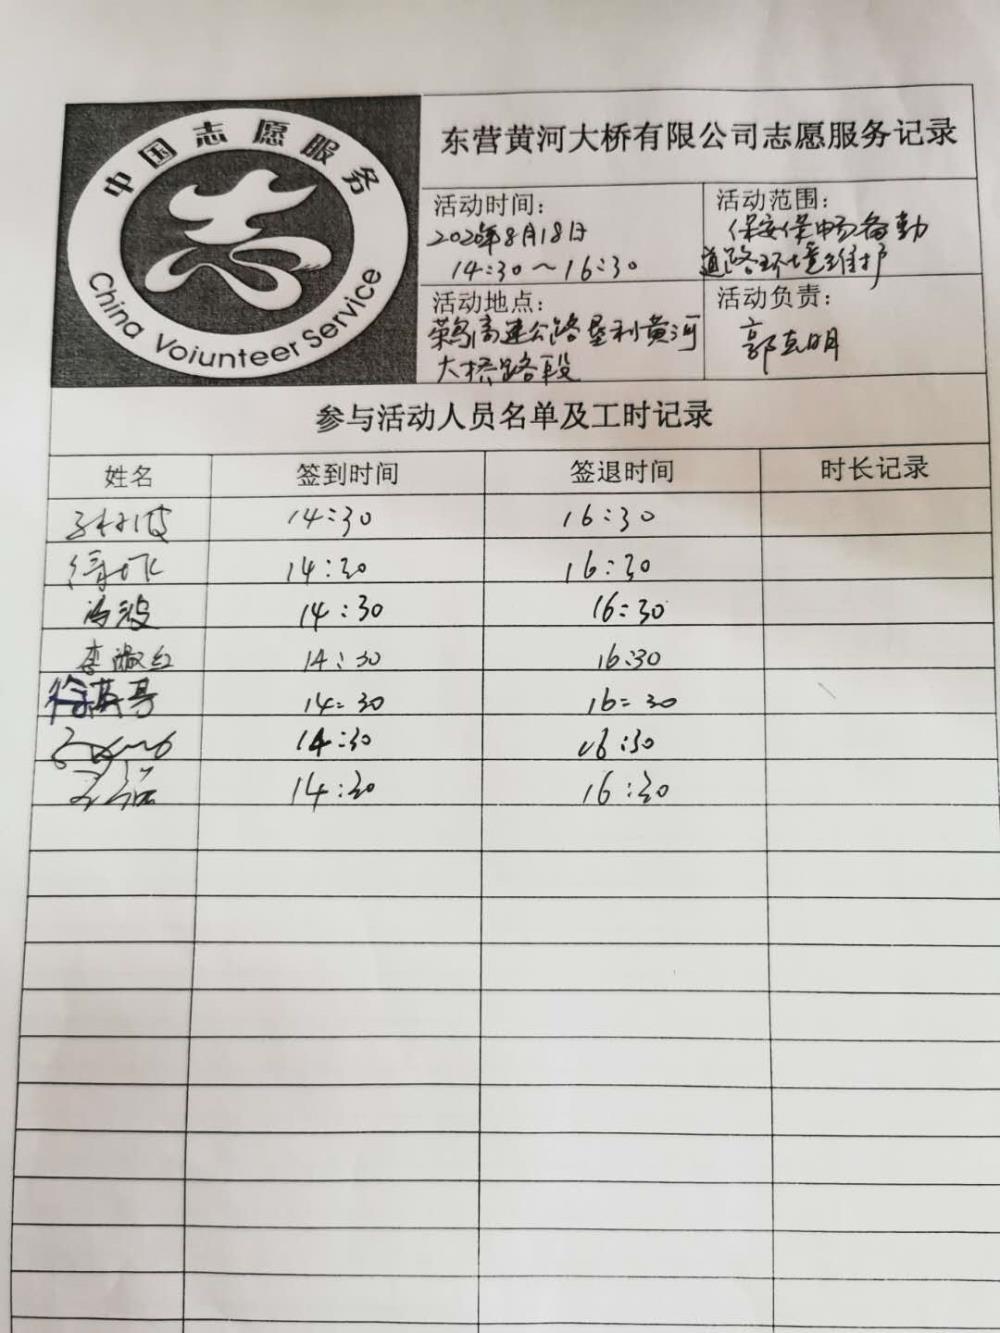 中国志愿服务
China Voiunteer Service
东营黄河大桥有限公司志愿服务记录
活动时间：
2020年8月18日
14:30～16:30
活动范围：
保安保畅备勤
道路环境维护
活动地点：
荣乌高速公路垦利黄河
大桥路段
活动负责：
郭 明
参与活动人员名单及工时记录
姓名 签到时间 签退时间 时长记录
14:30 16:30
14:30 16:30
冯波 14:30 16:30
李淑红 14:30 16:30
徐英 14:30 16:30
14:30 16:30
14:30 16:30